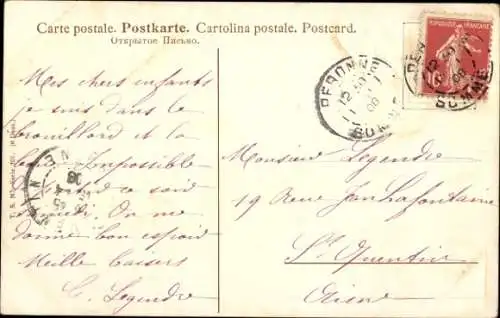 Carte postale. Postkarte. Cartolina postale. Postcard.
Открытое Письмо.
REPUBLIQUE FRANÇAISE
PERONNE
SOMME
Mes chers enfants
je suis dans le
brouillard et la
boue. Impossible
ce soir
On me
donne bon espoir
Meille baisers
C. Legendre
Monsieur Legendre
19 Rue Jean Lafontaine
St Quentin
Aisne